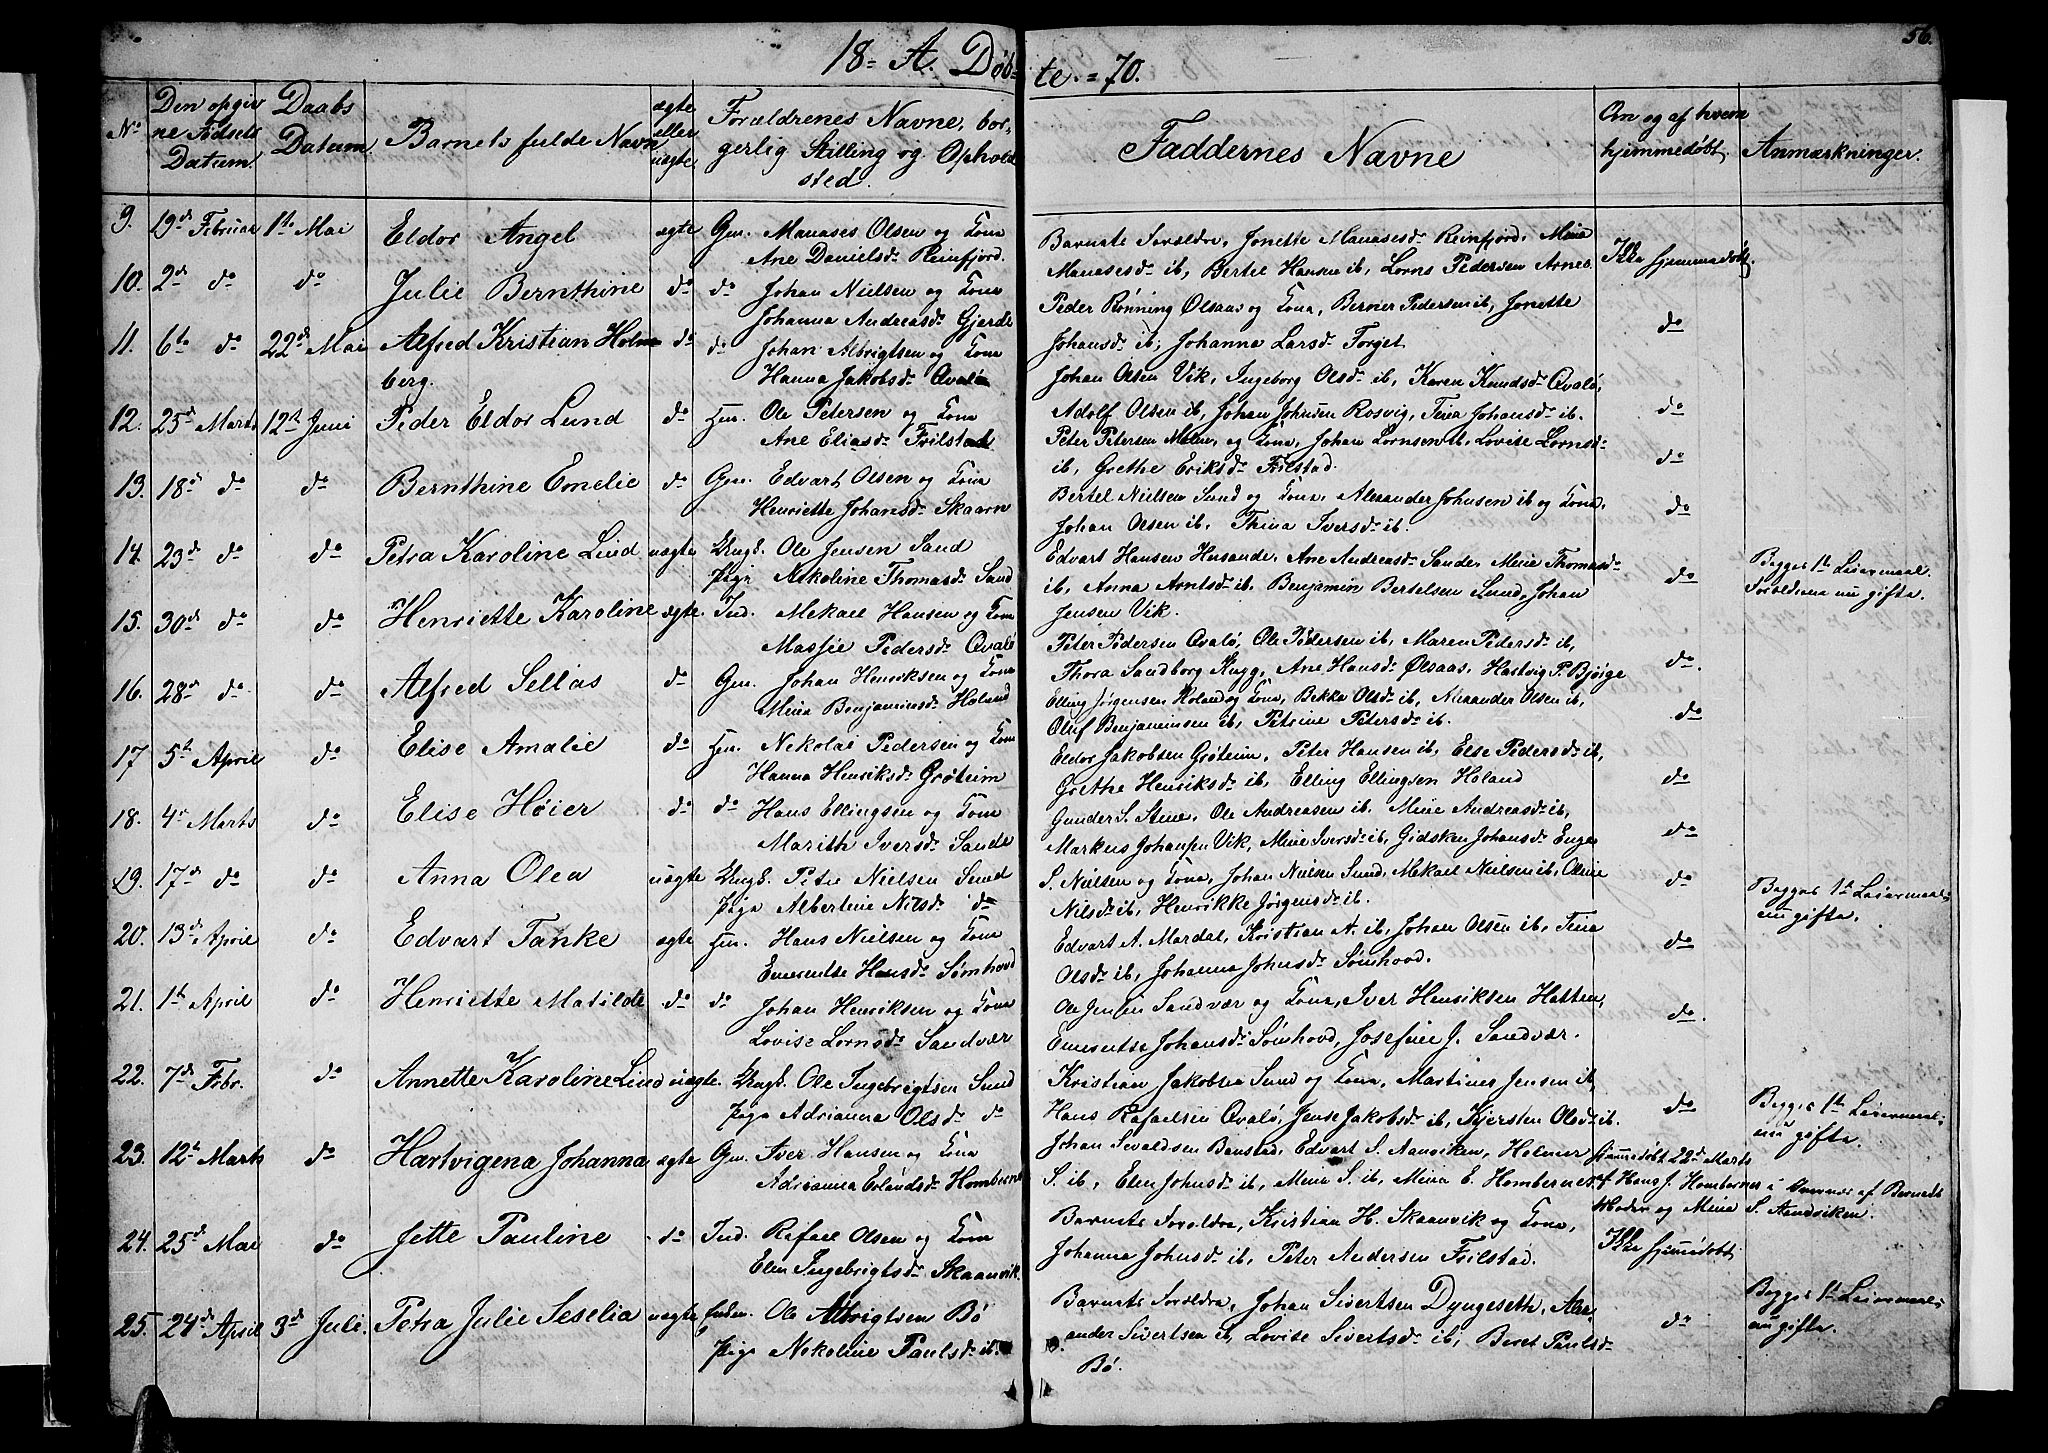 56.
18 = A. Døb=
te. = 70.
No
Den opgiv
ne Fødsels
Datum.
Daabs
Datum
Barnets fulde Navn
ægte
eller
uægte.
Forældrenes Navne, bor=
gerlig Stilling og Opholds
sted.
Faddernes Navne
Om og af hvem
hjemmedøbt.
Anmærkninger.
9. 19de Februar 1ste Mai Eldor Angel ægte Gm. Manases Olsen og Kone
Ane Danielsdr Reinfjord.
Barnets Forældre, Jonette Manasesdr Reinfjord, Mina
Manasesdr ib, Bertie Hansen ib, Lorns Pedersen Arnes
Ikke hjemmedøbt.
10. 2de do do Julie Bernthine do do Johan Nielsen og Kone
Johanna Andreasdr Gjerde
Peder Rønning Ølsaas og Kone, Berner Pedersen ib, Jonette
Johansdr ib, Johanna Larsdr Forget
do
11. 6te do 22de Mai Alfred Kristian Holm
berg.
do do Johan Albrigtsen og Kone
Hanna Jakobsdr Qvalø
Johan Olsen Vik, Ingeborg Olsdr ib, Karen Knudsdr Qvalø,
Adolf Olsen ib, Johan Johnsen Rosvig, Tina Johansdr ib.
do
12. 25de Marts 12te Juni Peder Eldor Lund do Hm. Ole Petersen og Kone
Ane Eliasdr Frilstad
Peter Petersen og Kone, Johan Lornsen ib, Lovise Lornsdr
ib, Grethe Eriksdr Frilstad.
do
13. 18de do do Bernthine Emelie do Gm. Edvart Olsen og Kone
Henriette Johansdr Skaarn
Bertel Nielsen Sund og Kone, Alexander Johnsen ib og Kone,
Johan Olsen ib, Thina Iversdr ib.
do
14. 23de do do Petra Karoline Lind uægte Ungk. Ole Jensen Sand
Pige Nekoline Thomasdr Sand
Edvart Hansen Husande, Ane Andreasdr Sande, Mina Thomasdr
ib, Anna Arntsdr ib, Benjamin Bertelsen Sund, Johan
Jensen Vik.
do
Begges 1te Leiermaal.
Forældrene nu gifte.
15. 30de do do Henriette Karoline ægte Ind. Mekael Hansen og Kone
Massie Pedersdr Qvalø
Peter Pedersen Qvalø, Ole Pedersen ib, Maren Pedersdr ib,
Thora Sandborg Rugg, Ane Hansdr Ølsaas, Hartvig P. Bjørge
do.
16. 28de do do Alfred Sellas do Gm. Johan Henriksen og Kone
Mina Benjaminsdr Holand
Elling Jørgensen Holand og Kone, Bekka Olsdr ib, Alexander Olsen ib,
Oluf Benjaminsen ib, Petrine Petersdr ib.
do
17 5te April do Elise Amalie do Hm. Nekolai Pedersen og Kone
Hanna Henriksdr Grøteim
Eldor Jakobsen Grøteim, Peter Hansen ib, Else Pedersdr ib,
Grethe Henriksdr ib, Elling Ellingsen Holand
do
18. 4de Marts do Elise Høier do do Hans Ellingsen og Kone
Marith Iversdr Sande
Gunder S. Stene, Ole Andreasen ib, Mine Andreasdr ib,
Markus Johansen Vik, Mine Iversdr ib, Gidsken Johansdr Enge
do
19. 17de do do Anna Olea uægte Ungk. Petre Nielsen Sund
Pige Albertine Nilsdr do
S. Nielsen og Kone, Johan Nielsen Sund, Mekael Nielsen ib, Oline
Nilsdr ib, Henrikke Jørgensdr ib.
do
Begges 1te Leiermaal
nu gifte.
20. 13de April do Edvart Tanke ægte Hm. Hans Nielsen og Kone
Emerentse Hansdr Sømhovd
Edvart A. Mardal, Kristian A. ib, Johan Olsen ib, Tina
Olsdr ib, Johanna Johnsdr Sømhovd.
do
21. 1te April do Henriette Matilde do do Johan Henriksen og Kone
Lovise Lornsdr Sandvær
Ole Jensen Sandvær og Kone, Iver Henriksen Hatten,
Emerentse Johansdr Sømhovd, Josefine J. Sandvær.
do.
22. 7de Febr. do Annette Karoline Lund uægte. Ungk. Ole Ingebrigtsen Sund
Pige Adrianna Olsdr do
Kristian Jakobsen Sund og Kone, Martines Jensen ib,
Hans Rafaelsen Qvalø, Jense Jakobsdr ib, Kjersten Olsdr ib.
do
Begges 1te Leiermaal.
nu gifte.
23. 12te Marts do Hartvigena Johanna ægte Gm. Iver Hansen og Kone
Adrianna Erlandsdr Hombernes
Johan Sevaldsen Banstad, Edvart S. Aanviken, Helmer
S. ib, Elen Johnsdr ib, Mina S. ib, Mina E. Hombernes.
Hjemmedøbt 22de Marts
af Hans J. Hombernes i Overvær af Barnets
Moder og Mina S. Aandviken.
24. 25de Mai do Jette Pauline do Ind. Rafael Olsen og Kone
Elen Ingebrigtsdr Skaanvik.
Barnets Forældre, Kristian H. Skaanvik og Kone,
Johanna Johnsdr ib, Peter Andersen Frilstad.
Ikke hjemmedøbt
25. 24de April 3de Juli. Petra Julie Seselia uægte Enkem. Ole Albrigtsen Bø
Pige Nekoline Paulsdr ib.
Barnets Forældre, Johan Sivertsen Dyngeseth, Alex=
ander Sivertsen ib, Lovise Sivertsdr ib, Beret Paulsdr
Bø.
do
Begges 1te Leiermaal.
nu gifte.